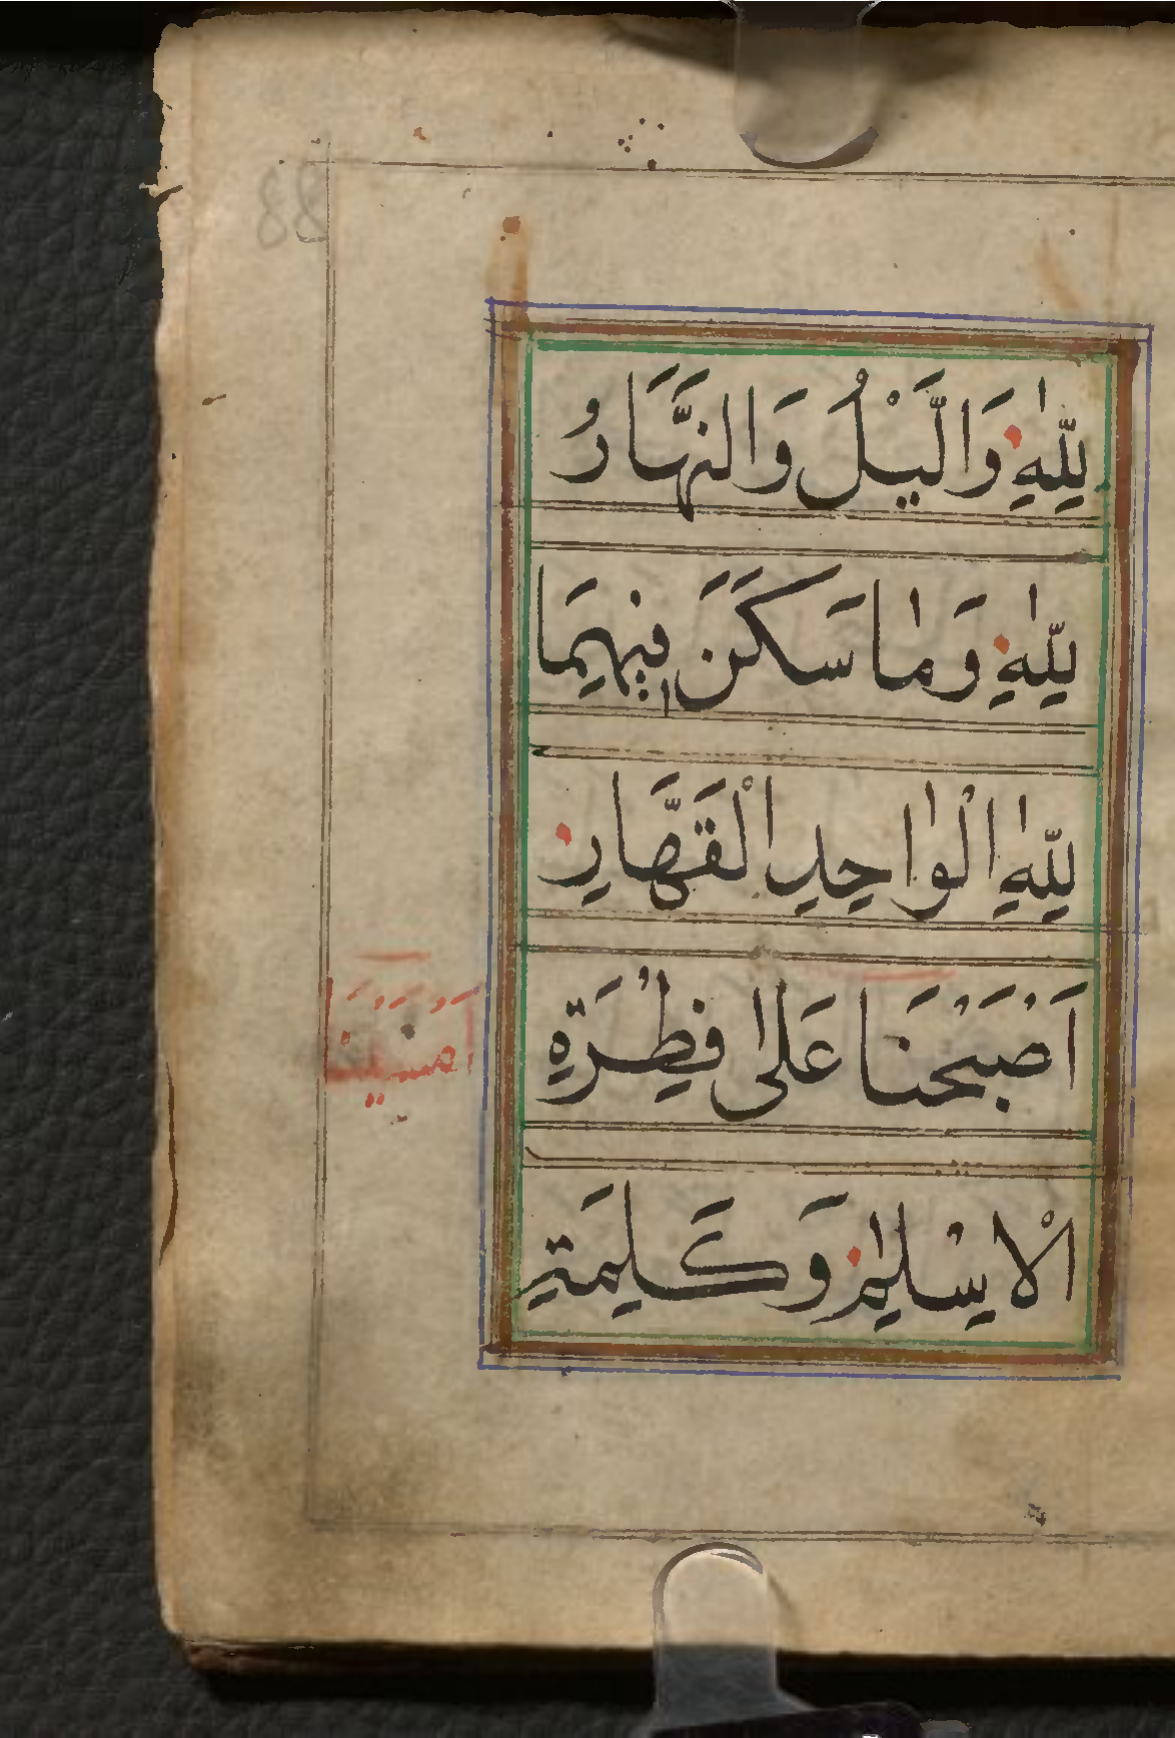 لِلّٰهِ وَالَّيْلُ وَالنَّهَارُ
لِلّٰهِ وَمٰا سَكَنَ فِيهِمَا
لِلّٰهِ الْوٰاحِدِ الْقَهَّارِ
اَصْبَحْنَا عَلىٰ فِطْرَةِ
الْاِسْلٰمِ وَكَلِمَةِ